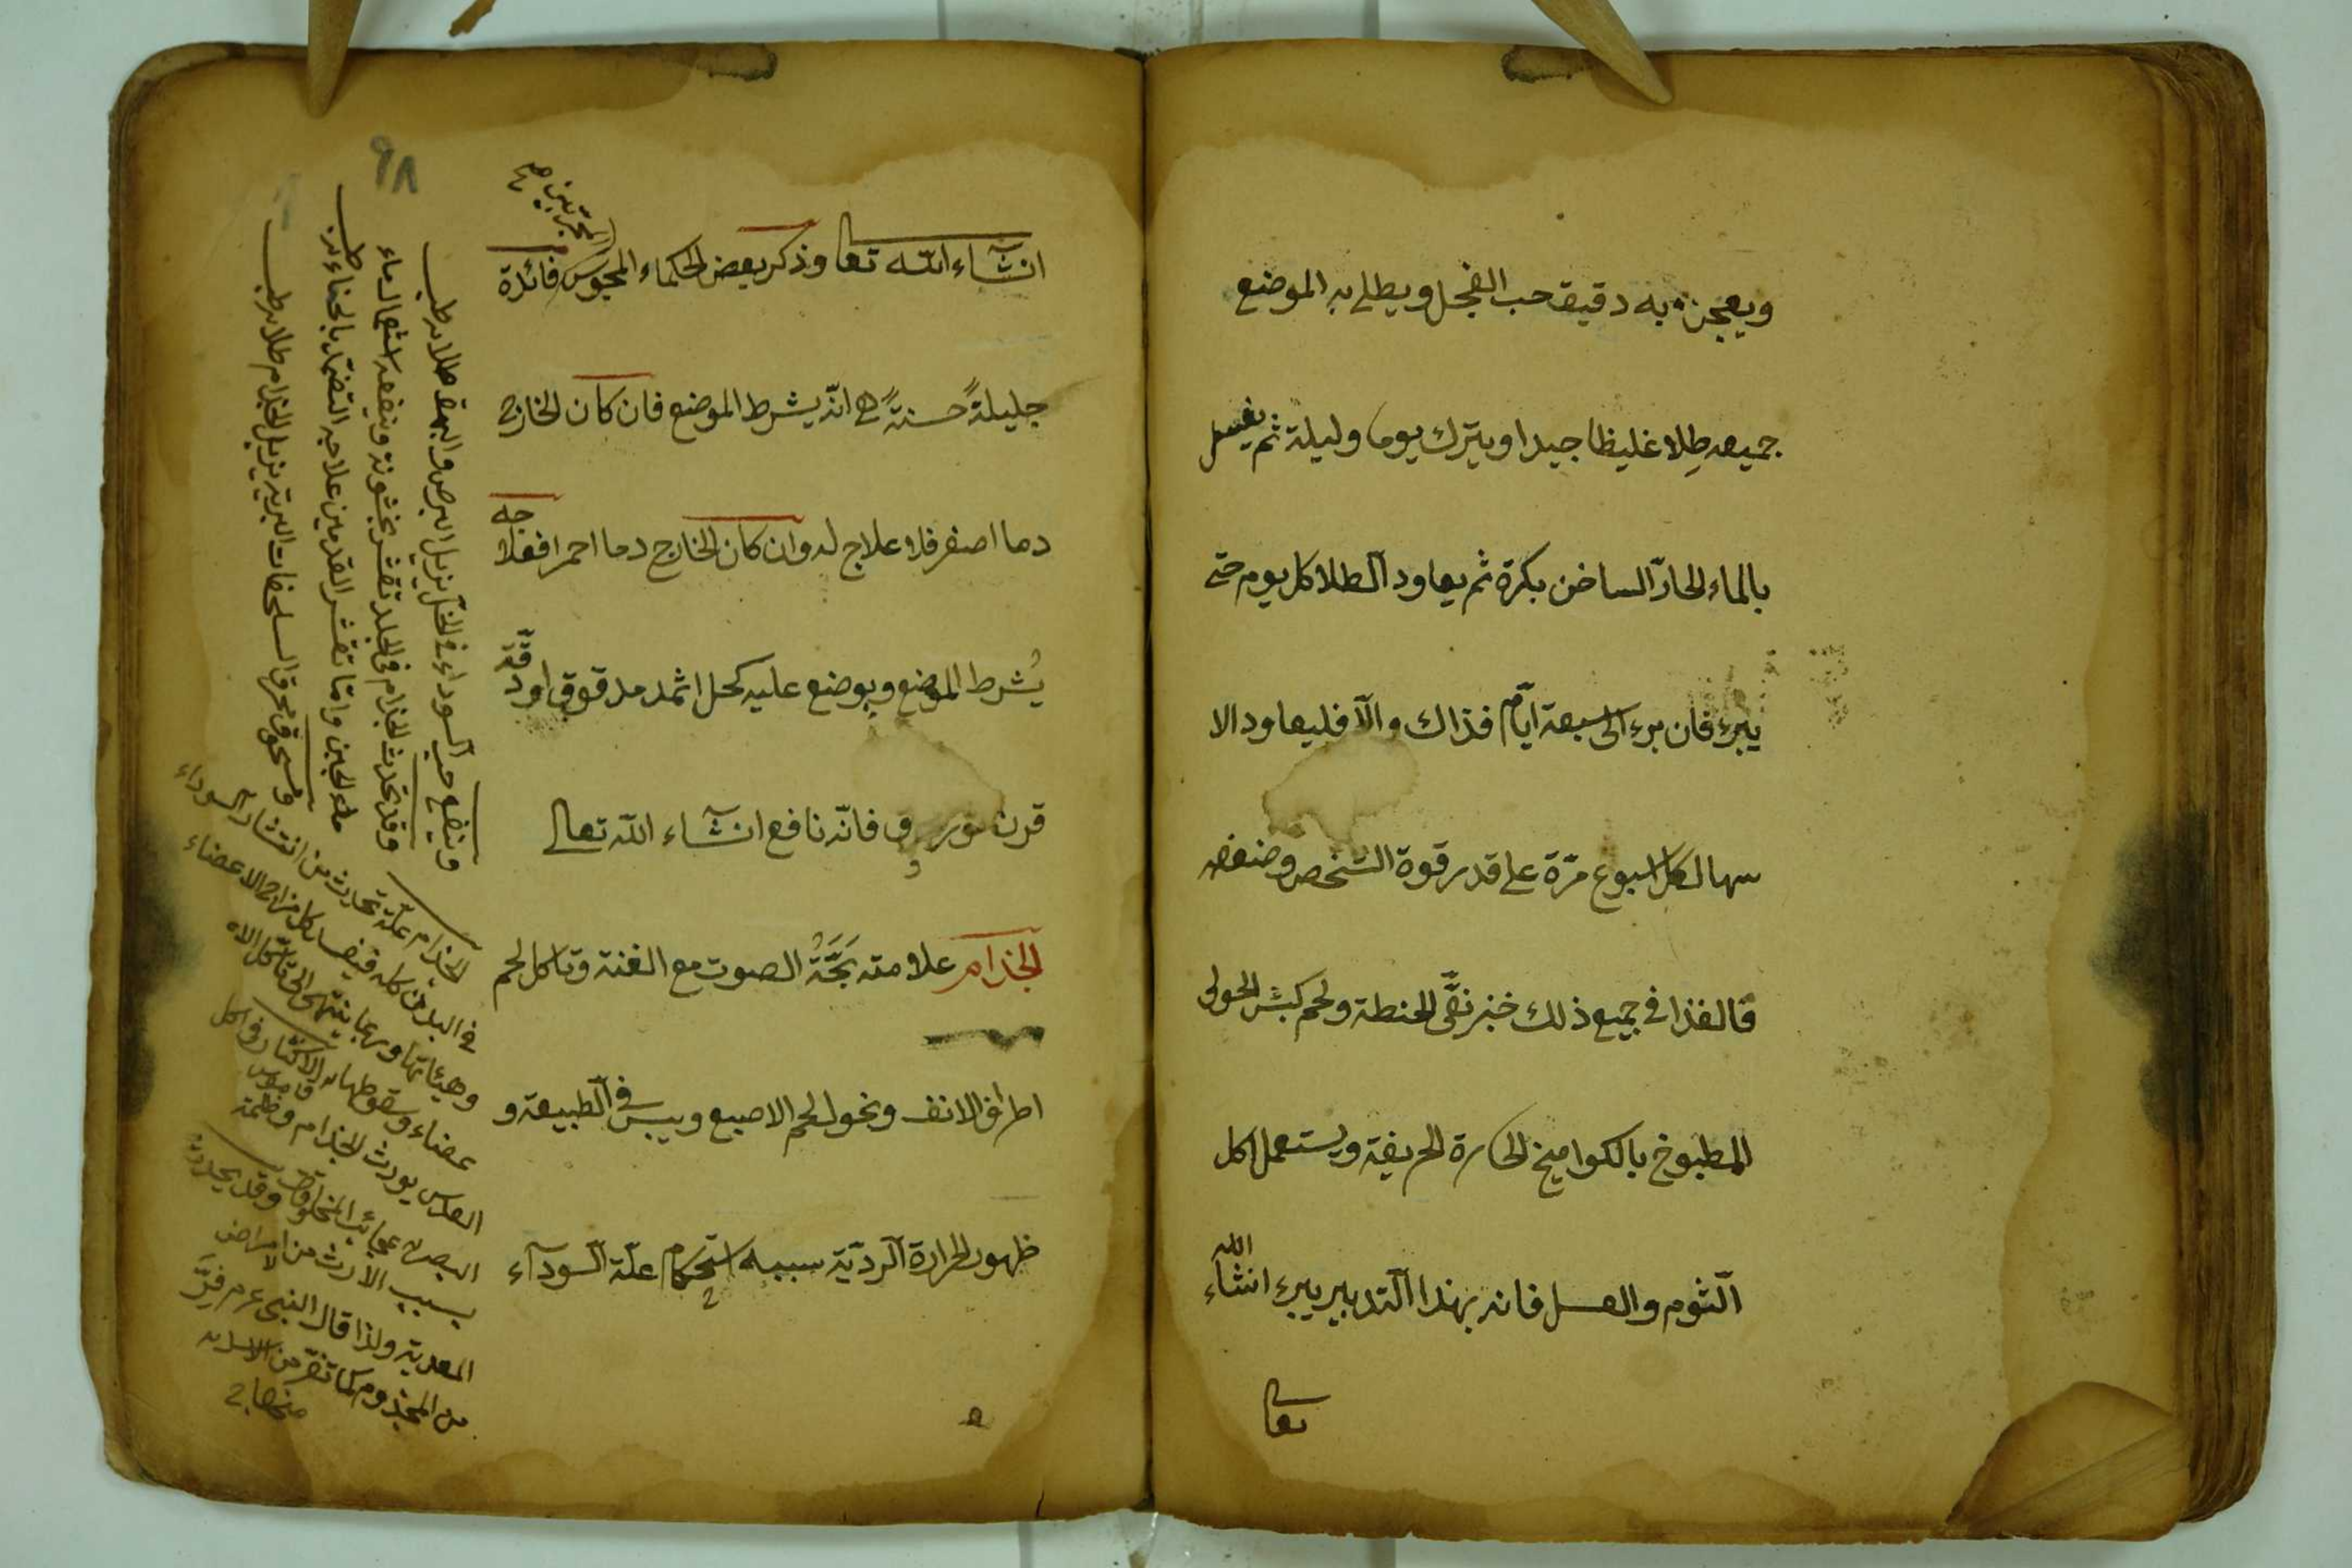 ويعجن به دقيق حب الفجل ويطلى به الموضع
جميعه طلا غليظا جيدا ويترك يوما وليلة ثم يغسل
بالماء الحارّ الساخن بكرة ثم يعاود الطلا كل يوم حتى
يبرء فان برء الى سبعة ايّام فذاك والّا فليعاود الا
سهال كل اسبوع مرّة على قدر قوة الشخص وضعفه
فالغذا في جميع ذلك خبز نقّى الحنطة ولحم كبش الحولى
المطبوخ بالكواميخ الحارة الحريفة ويستعمل اكل
الثوم والعسل فانه بهذا التدبير يبرء انشاء الله
تعالى
٩٨
انشاء الله تعالى وذكر بعض الحكماء المجوس المجرّبين فائدة
جليلةً حسنةً هي انّه يشرط الموضع فان كان الخارج
دما اصفر فلا علاج له وان كان الخارج دما احمر افعلاجه
يُشرط الموضع ويوضع عليه كحل اثمد مدقوق او دقّة
قرن فانّه نافع انشاء الله تعالى
الجذام علامته بَحَّةُ الصوت مع الغنة وتاكل لحم
اطراف الانف ونحول لحم الاصبع ويبس في الطبيعة و
ظهور الحرارة الرديّة سببه استحكام علّة السودآء
وينفع حب السوداء في الخل يزيل البرص والبهق طلاء طب
وقد يحدث الجذام في الجلد تقشر بخشونة وينفعه استعمال ماء
ماء الجبن وامّا تقشر القدمين علاجه التضمّد بالحناء طب
وسحق محرق السلحفات البرية يزيل الجذام طلاء طب
الجذام علّة تحدث من انتشار السوداء
في البدن كله فيفسد كل مزاج الاعضاء
وهيئاتها وربما ينتهى الى تاكل الا
عضاء وسقوطها قاموس الاكثار في اكل
العدس يورث الجذام وظلمة
البصر عجائب المخلوقات وقد يحدث
بسبب الارث من امراض
المعدية ولذا قال النبي عم فرّ
من المجذوم كما تفرّ من الاسد
منهاج